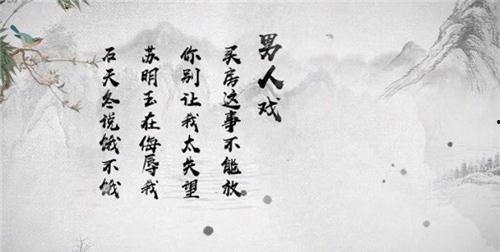 男人戏
买房这事不能放
你别让我太失望
苏明玉在侮辱我
石天冬说饿不饿